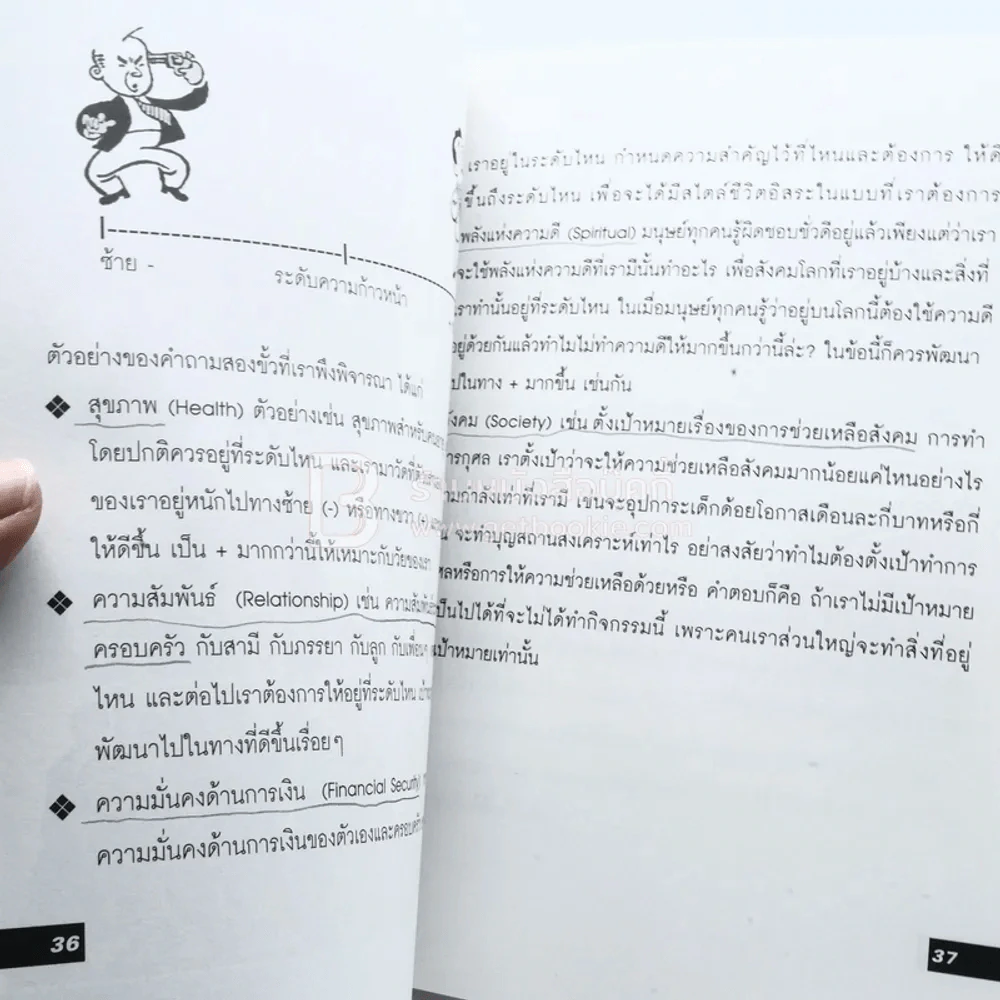 ซ้าย -
ระดับความก้าวหน้า
ตัวอย่างของคำถามสองขั้วที่เราพึงพิจารณา ได้แก่
❖ สุขภาพ (Health) ตัวอย่างเช่น สุขภาพสำหรับคน
โดยปกติควรอยู่ที่ระดับไหน และเรามาวัดที่
ของเราอยู่หนักไปทางซ้าย (-) หรือทางขวา (+)
ให้ดีขึ้น เป็น + มากกว่านี้ให้เหมาะกับวัยของเรา
❖ ความสัมพันธ์ (Relationship) เช่น ความสัมพันธ์
ครอบครัว กับสามี กับภรรยา กับลูก กับเพื่อนๆ
ไหน และต่อไปเราต้องการให้อยู่ที่ระดับไหน
พัฒนาไปในทางที่ดีขึ้นเรื่อยๆ
❖ ความมั่นคงด้านการเงิน (Financial Security)
ความมั่นคงด้านการเงินของตัวเองและครอบครัว
36
เราอยู่ในระดับไหน กำหนดความสำคัญไว้ที่ไหนและต้องการ ให้ดี
ขึ้นถึงระดับไหน เพื่อจะได้มีสไตล์ชีวิตอิสระในแบบที่เราต้องการ
พลังแห่งความดี (Spiritual) มนุษย์ทุกคนรู้ผิดชอบชั่วดีอยู่แล้วเพียงแต่ว่าเรา
จะใช้พลังแห่งความดีที่เรามีนั้นทำอะไร เพื่อสังคมโลกที่เราอยู่บ้างและสิ่งที่
เราทำนั้นอยู่ที่ระดับไหน ในเมื่อมนุษย์ทุกคนรู้ว่าอยู่บนโลกนี้ต้องใช้ความดี
อยู่ด้วยกันแล้วทำไมไม่ทำความดีให้มากขึ้นกว่านี้ล่ะ? ในข้อนี้ก็ควรพัฒนา
ไปในทาง + มากขึ้น เช่นกัน
ังคม (Society) เช่น ตั้งเป้าหมายเรื่องของการช่วยเหลือสังคม การทำ
ารกุศล เราตั้งเป้าว่าจะให้ความช่วยเหลือสังคมมากน้อยแค่ไหนอย่างไร
ามกำลังเท่าที่เรามี เช่นจะอุปการะเด็กด้อยโอกาสเดือนละกี่บาทหรือกี่
น จะทำบุญสถานสงเคราะห์เท่าไร อย่าสงสัยว่าทำไมต้องตั้งเป้าทำการ
ศลหรือการให้ความช่วยเหลือด้วยหรือ คำตอบก็คือ ถ้าเราไม่มีเป้าหมาย
เป็นไปได้ที่จะไม่ได้ทำกิจกรรมนี้ เพราะคนเราส่วนใหญ่จะทำสิ่งที่อยู่
เป้าหมายเท่านั้น
37
ร้านหนังสือบุ๊คกี้
www.getbookie.com